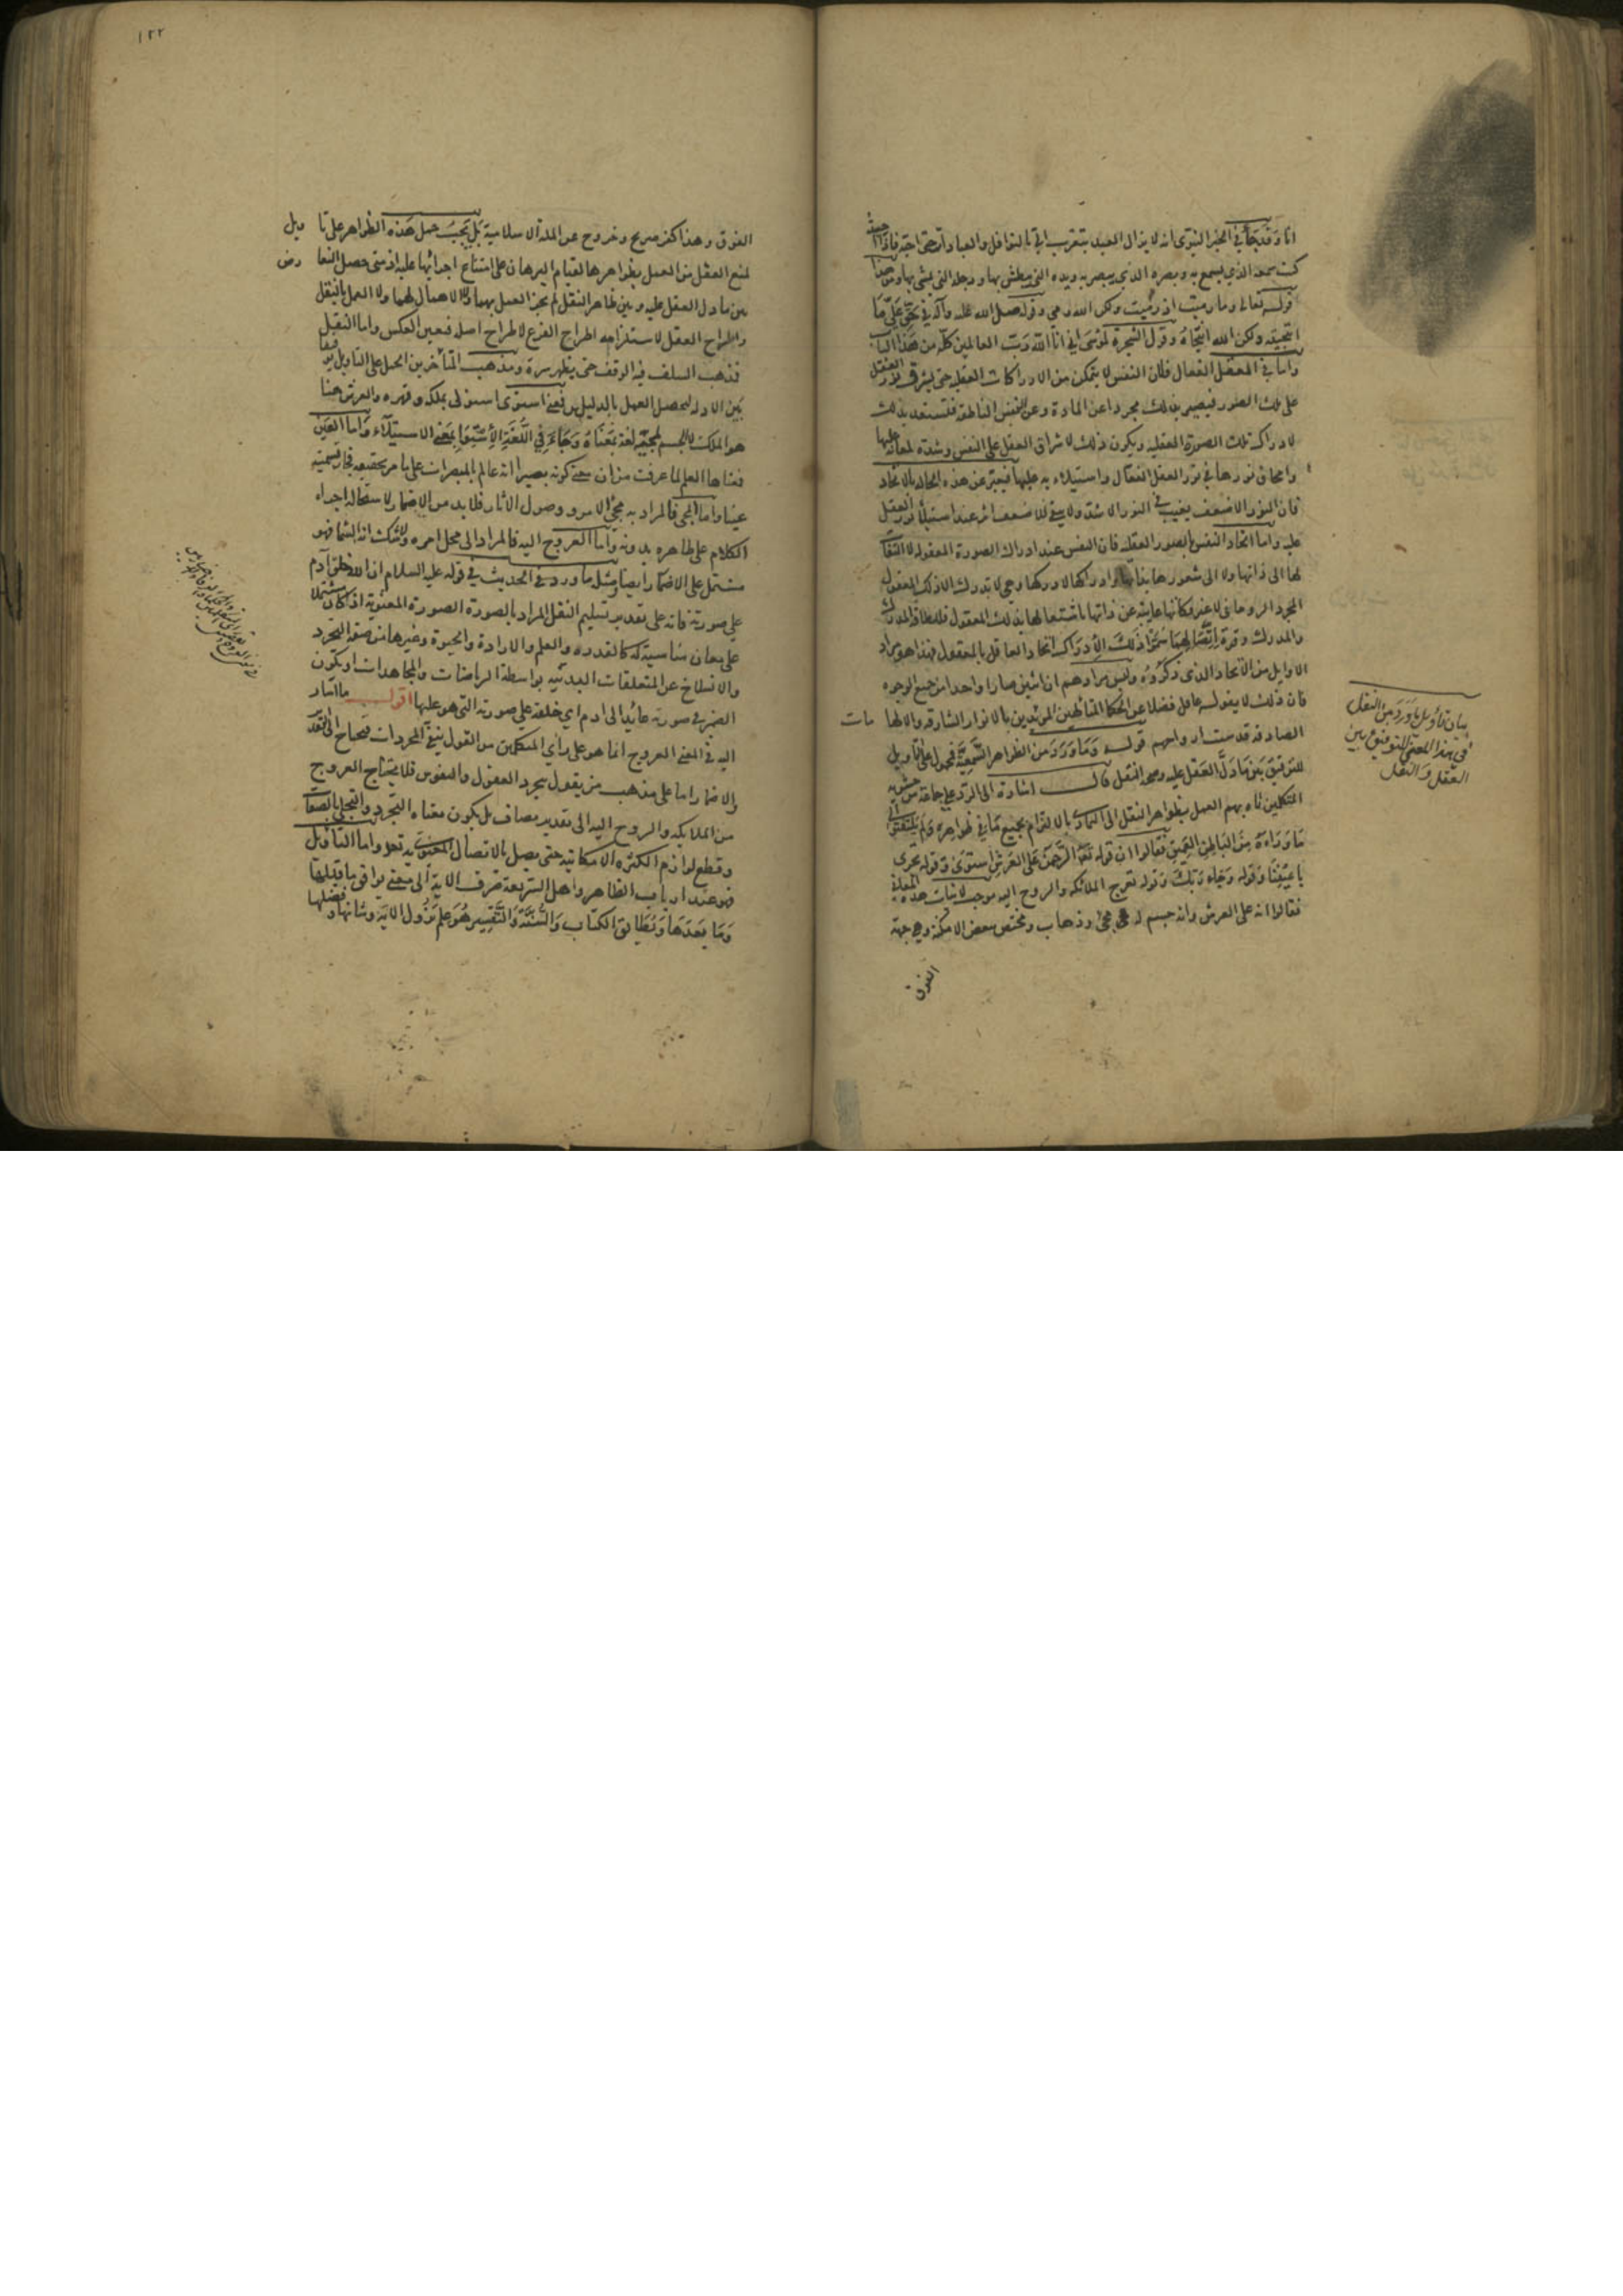 انا وقد جاء في الخبر النبوي انه لا يزال العبد يتقرب الي بالنوافل والعبادات حتى احبه فاذا احببته
كنت سمعه الذي يسمع به وبصره الذي يبصر به ويده التي يبطش بها ورجله التي يمشي بها ومن هذا
قوله تعالى وما رميت اذ رميت ولكن الله رمى وقوله صلى الله عليه وآله في حق علي ما
انتجيته ولكن الله انتجاه وقول الشجرة لموسى اني انا الله رب العالمين كله من هذا الباب
واما في العقل الفعال فلان النفس لا يتمكن من الادراكات العقلية حتى يشرق نور العقل
على تلك الصور فيصير بذلك مجردا عن المادة وعن النفس الناطقة فتستعد بذلك
لادراك تلك الصورة العقلية ويكون ذلك لاشراق العقل على النفس وشدة لمعانه عليها
وامحاق نورها في نور العقل الفعال واستيلاءه عليها فيعبر عن هذه الحالة بالاتحاد
فان النور الاضعف يغيب في النور الاشد ولا يبقى للاضعف اثر عند استيلاء نور العقل
عليه واما اتحاد النفس بالصور العقلية فان النفس عند ادراك الصورة المعقولة لا التفات
لها الى ذاتها ولا الى شعورها بذاتها وادراكها لادركها وهي لا تدرك الا ذلك المعقول
المجرد الروحاني لا غير فكانها غايبة عن ذاتها باشتغالها بذلك المعقول فلطافة المدرك
والمدرك وقوة اتصالهما سموا ذلك الادراك اتحاد العاقل بالمعقول فهذا هو مراد
الاوايل من الاتحاد الذي ذكروه وليس مرادهم ان اثنين صارا واحدا من جميع الوجوه
فان ذلك لا يقوله عاقل فضلا عن الحكما المتالهين المؤيدين بالانوار الشارقة والالها مات
الصادقة قدست ارواحهم قوله وما ورد من الظواهر السمعية فمحمول على التأويل
للتوفيق بين ما دل العقل عليه وصحة النقل قال اشارة الى الرد على جماعة من حشوية
المتكلمين تاه بهم العمل بظواهر النقل الى التمادي بالالتزام بجميع ما في ظواهره ولم يلتفتوا الى
ما وراءه من الباطن العميق فقالوا ان قوله تعالى الرحمن على العرش استوى وقوله تجري
باعيننا وقوله وجاء ربك وقوله تعرج الملائكة والروح اليه موجب لاثبات هذه المعاني
فقالوا انه على العرش وانه جسم له مجئ وذهاب ومختص ببعض الامكنة وهي جهة
الفوق
بيان تأويل ما ورد من النقل
في هذا المعنى للتوفيق بين
العقل والنقل
١٢٢
الفوق وهذا كفر صريح وخروج عن الملة الاسلامية بل يجب حمل هذه الظواهر على تا ويل
لمنع العقل من العمل بظواهرها لقيام البرهان على امتناع اجرائها عليه اذ متى حصل التعا رض
بين ما دل العقل عليه وبين ظاهر النقل لم يجز العمل بهما ولا الاهمال لهما ولا العمل بالنقل
واطراح العقل لاستلزامه اطراح الفرع لاطراح اصله فتعين العكس واما النقل
فذهب السلف فيه الوقف حتى يظهر سره ومذهب المتأخرين الحمل على التاويل توفيقا
بين الادلة ليحصل العمل بالدليلين فمعنى استوى استولى بملكه وقهره والعرش هنا
هو الملك لا الجسم لمجيئه لغة بمعناه وجاء في اللغة الاستوا بمعنى الاستيلاء واما العين
فمعناها العلم لما عرفت من ان معنى كونه بصيرا انه عالم بالمبصرات على ما مر تحقيقه فجاز تسميته
عينا واما المجي فالمراد به مجئ الامر ووصول الآثار فلا بد من الاضمار لاستحالة اجراء
الكلام على ظاهره بدونه واما العروج اليه فالمراد الى محل امره ولا شك انه السما فهو
مشتمل على الاضمار ايضا ومثل ما ورد في الحديث في قوله عليه السلام ان الله خلق آدم
على صورته فانه على تقدير تسليم النقل المراد بالصورة الصورة المعنوية اذ كان مشتملا
على معان مناسبة له كالقدرة والعلم والارادة والحيوة وغيرها من صفة التجرد
والانسلاخ عن المتعلقات البدنية بواسطة الرياضات والمجاهدات او يكون
الضمير في صورته عائدا الى ادم اي خلقه على صورته التي هو عليها اقول ما اشار
اليه في المعنى العروج انما هو على رأي المتكلمين من القول بنفي المجردات فيحتاج الى التقدير
والاضمار اما على مذهب من يقول بتجرد العقول والنفوس فلا يحتاج العروج
من الملايكة والروح اليه الى تقدير مضاف بل يكون معناه التجرد والتجلي بالصفات
وقطع لوازم الكثرة الامكانية حتى يصل بالاتصال المعنوي به تعالى واما التأويل
فهو عند ارباب الظاهر واهل الشريعة صرف الاية الى معنى يوافق ما قبلها
وما بعدها ويطابق الكتاب والسنة والتفسير هو علم نزول الاية وشانها وفضلها